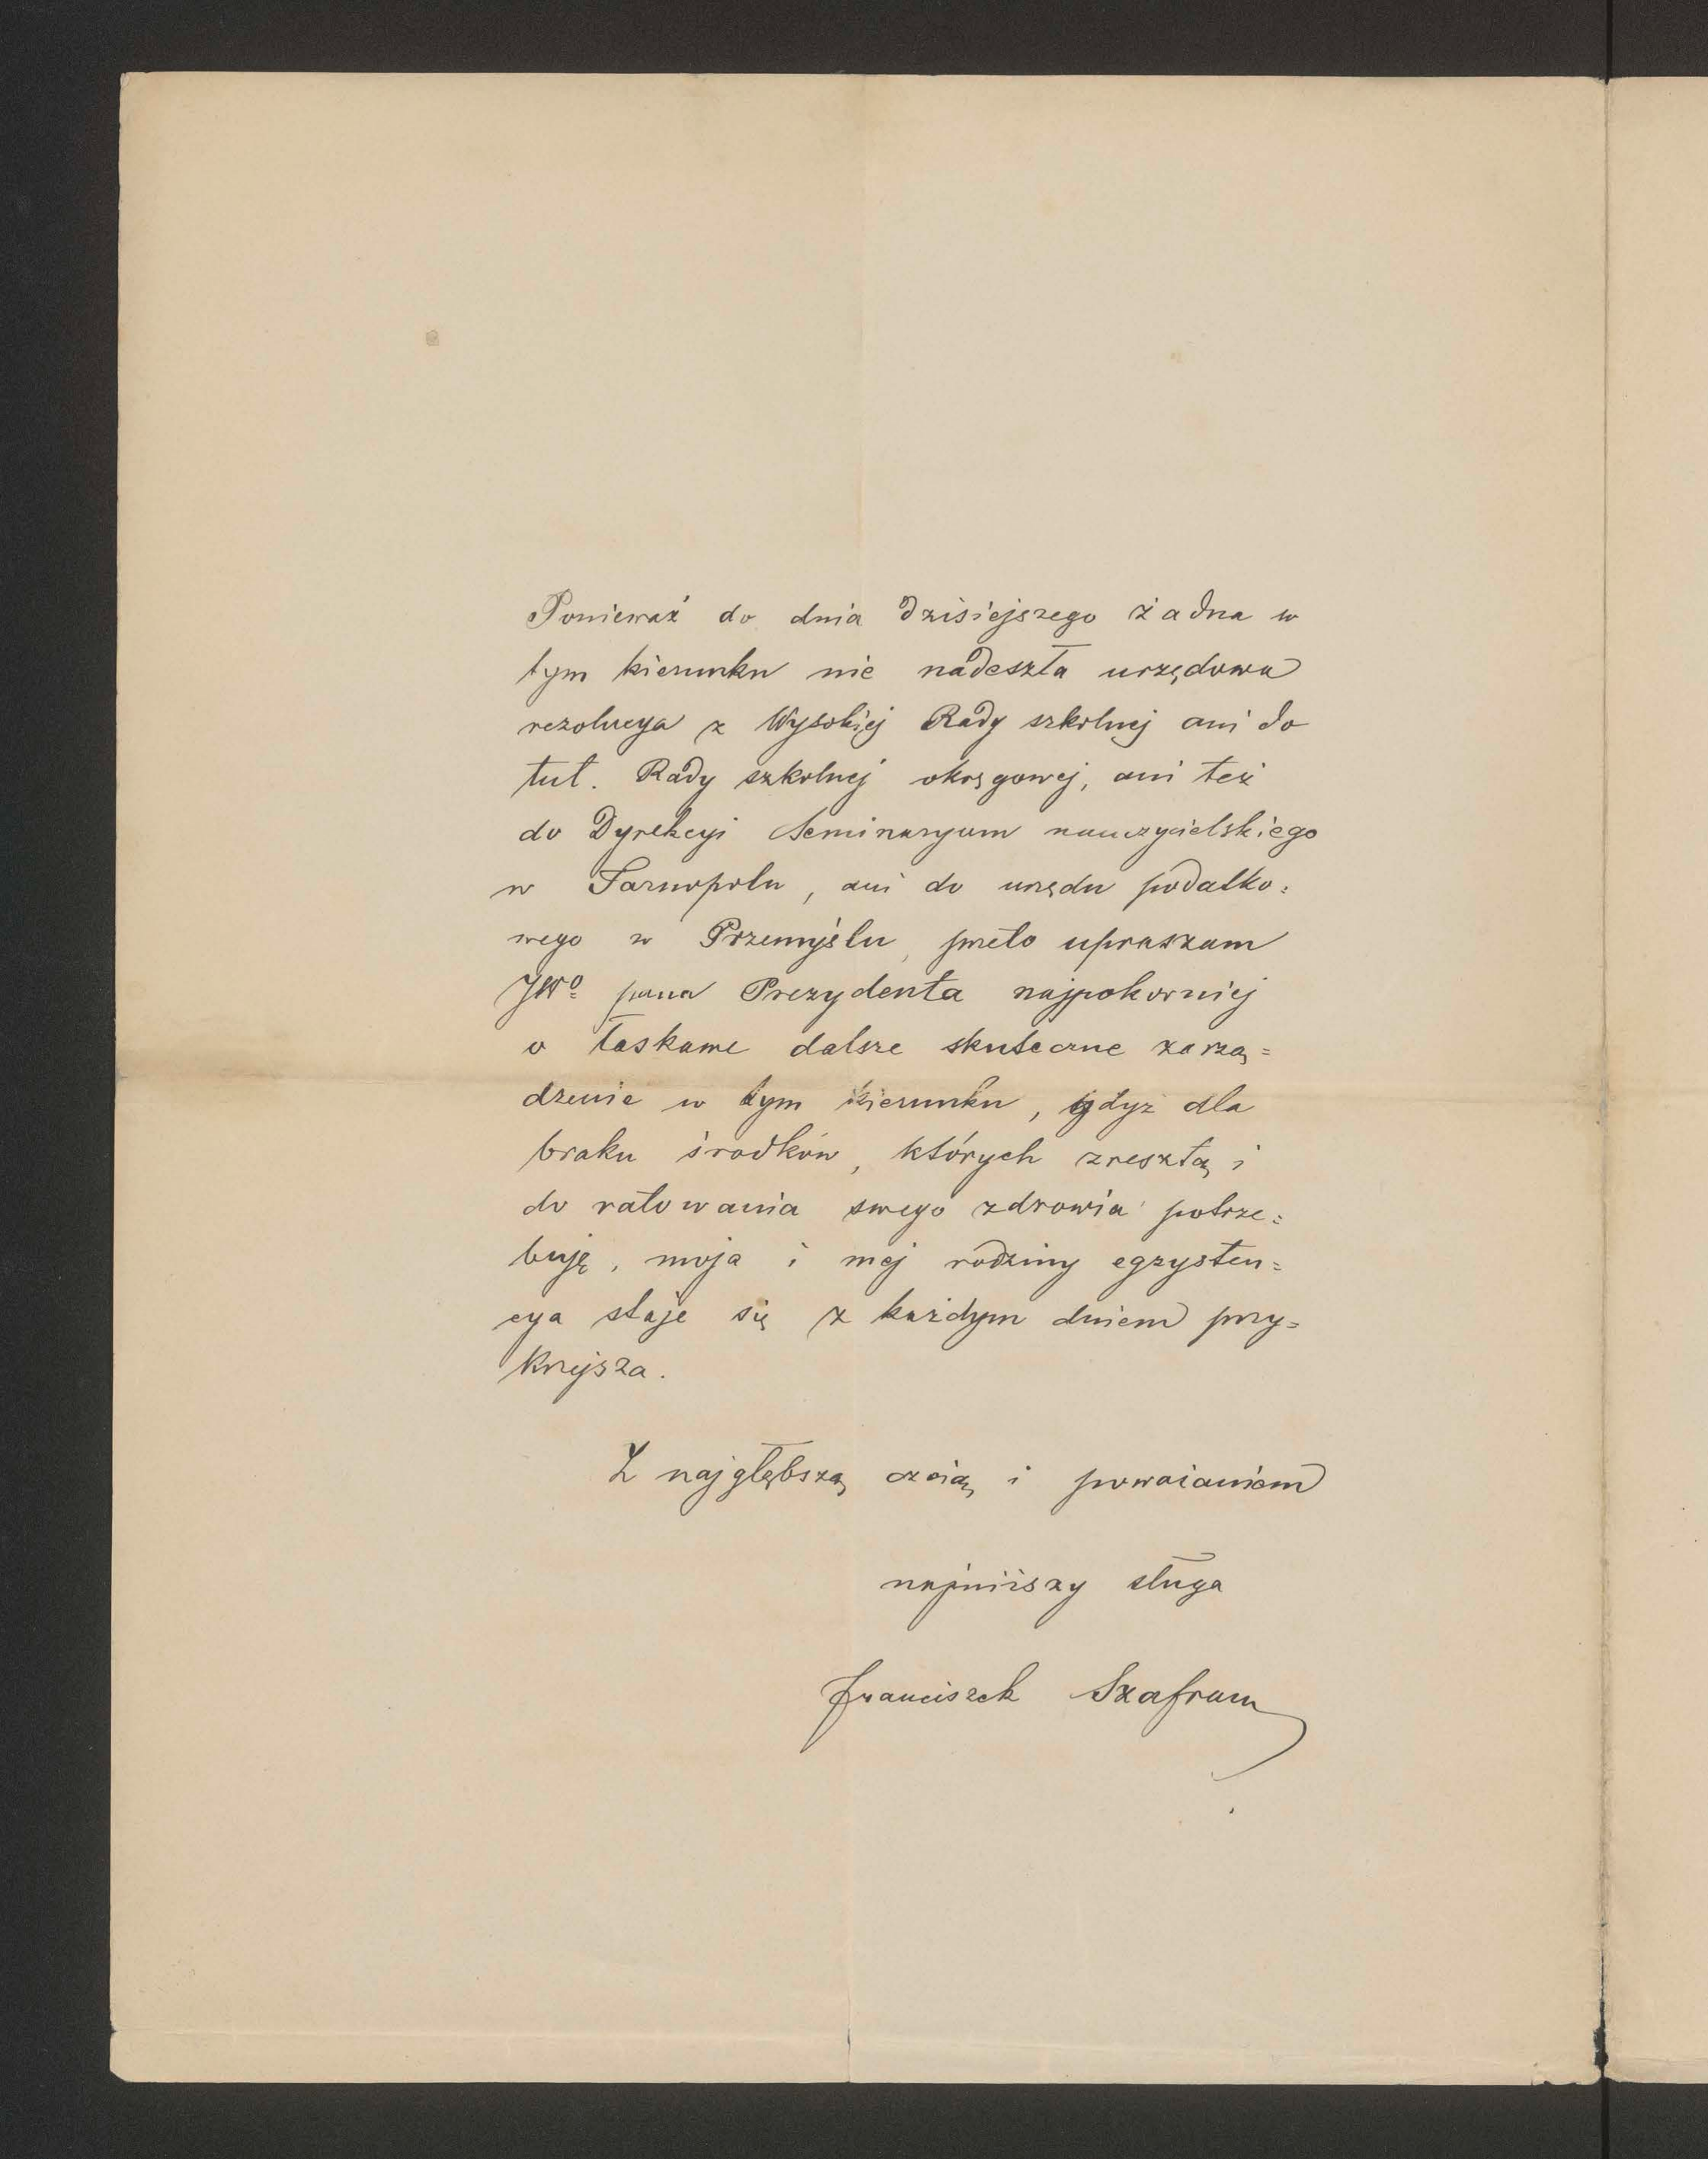 Ponieważ do dnia dzisiejszego żadna w
tym kierunku nie nadeszła urzędowa
rezolucya z Wysokiej Rady szkolnej ani do
tut. Rady szkolnej okręgowej, ani też
do Dyrekcyi Seminaryum nauczycielskiego
w Tarnopolu, ani do urzędu podatko=
wego w Przemyślu, przeto upraszam
JWo pana Prezydenta najpokorniej
o łaskawe dalsze skuteczne zarzą=
dzenie w tym kierunku, gdyż dla
braku środków, których zresztą i
do ratowania swego zdrowia potrze=
buję, moja i mej rodziny egzysten=
cya staje się z każdym dniem przy=
krzejsza.
Z najgłębszą czcią i poważaniem
najniższy sługa
Franciszek Szafran